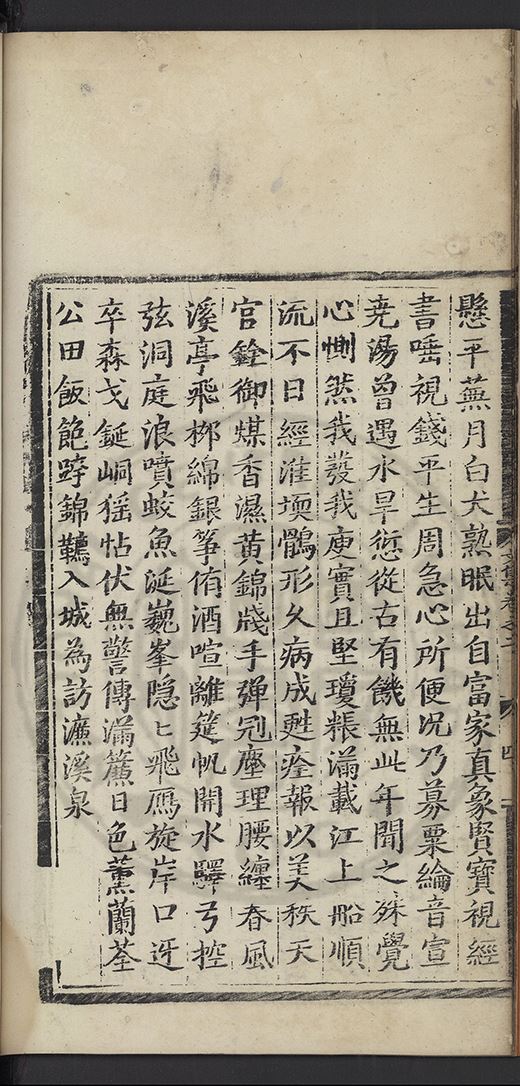 懸平蕪月白犬熟眠出自富家真象賢寶視經
書唾視錢平生周急心所便况乃募粟綸音宣
尭湯曽遇水旱愆從古有饑無此年聞之殊覺
心惻然我發我庾實且堅瓊粻滿載江上船順
流不日經淮堧鶻形久病成甦痊報以美秩天
官銓御煤香濕黄錦牋手彈冠塵理腰纏春風
溪亭飛柳綿銀筝侑酒喧離筵帆開水驛弓控
弦洞庭浪噴蛟魚涎巍峯隠匕飛鴈旋岸口迓
卒森戈鋋峒猺怗伏無警傳滿簾日色薫蘭荃
公田飯飽跨錦韉入城為訪濂溪泉